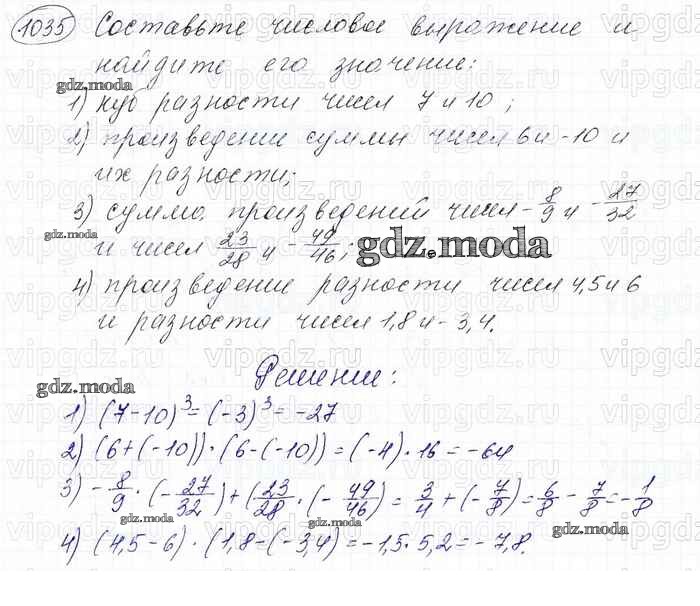 1035 Составьте числовое выражение и
найдите его значение:
1) куб разности чисел 7 и 10;
2) произведение суммы чисел 6 и -10 и
их разности;
3) сумма произведений чисел -8/9 и -27/32
и чисел 23/28 и -49/46;
4) произведение разности чисел 4,5 и 6
и разности чисел 1,8 и -3,4.
Решение:
1) (7-10)³=(-3)³=-27
2) (6+(-10))·(6-(-10))=(-4)·16=-64
3) -8/9·(-27/32)+(23/28·(-49/46)=3/4+(-7/8)=6/8-7/8=-1/8
4) (4,5-6)·(1,8-(-3,4)=-1,5·5,2=-7,8.
gdz.moda
gdz.moda
gdz.moda
gdz.moda
gdz.moda
gdz.moda
gdz.moda
vipgdz.ru